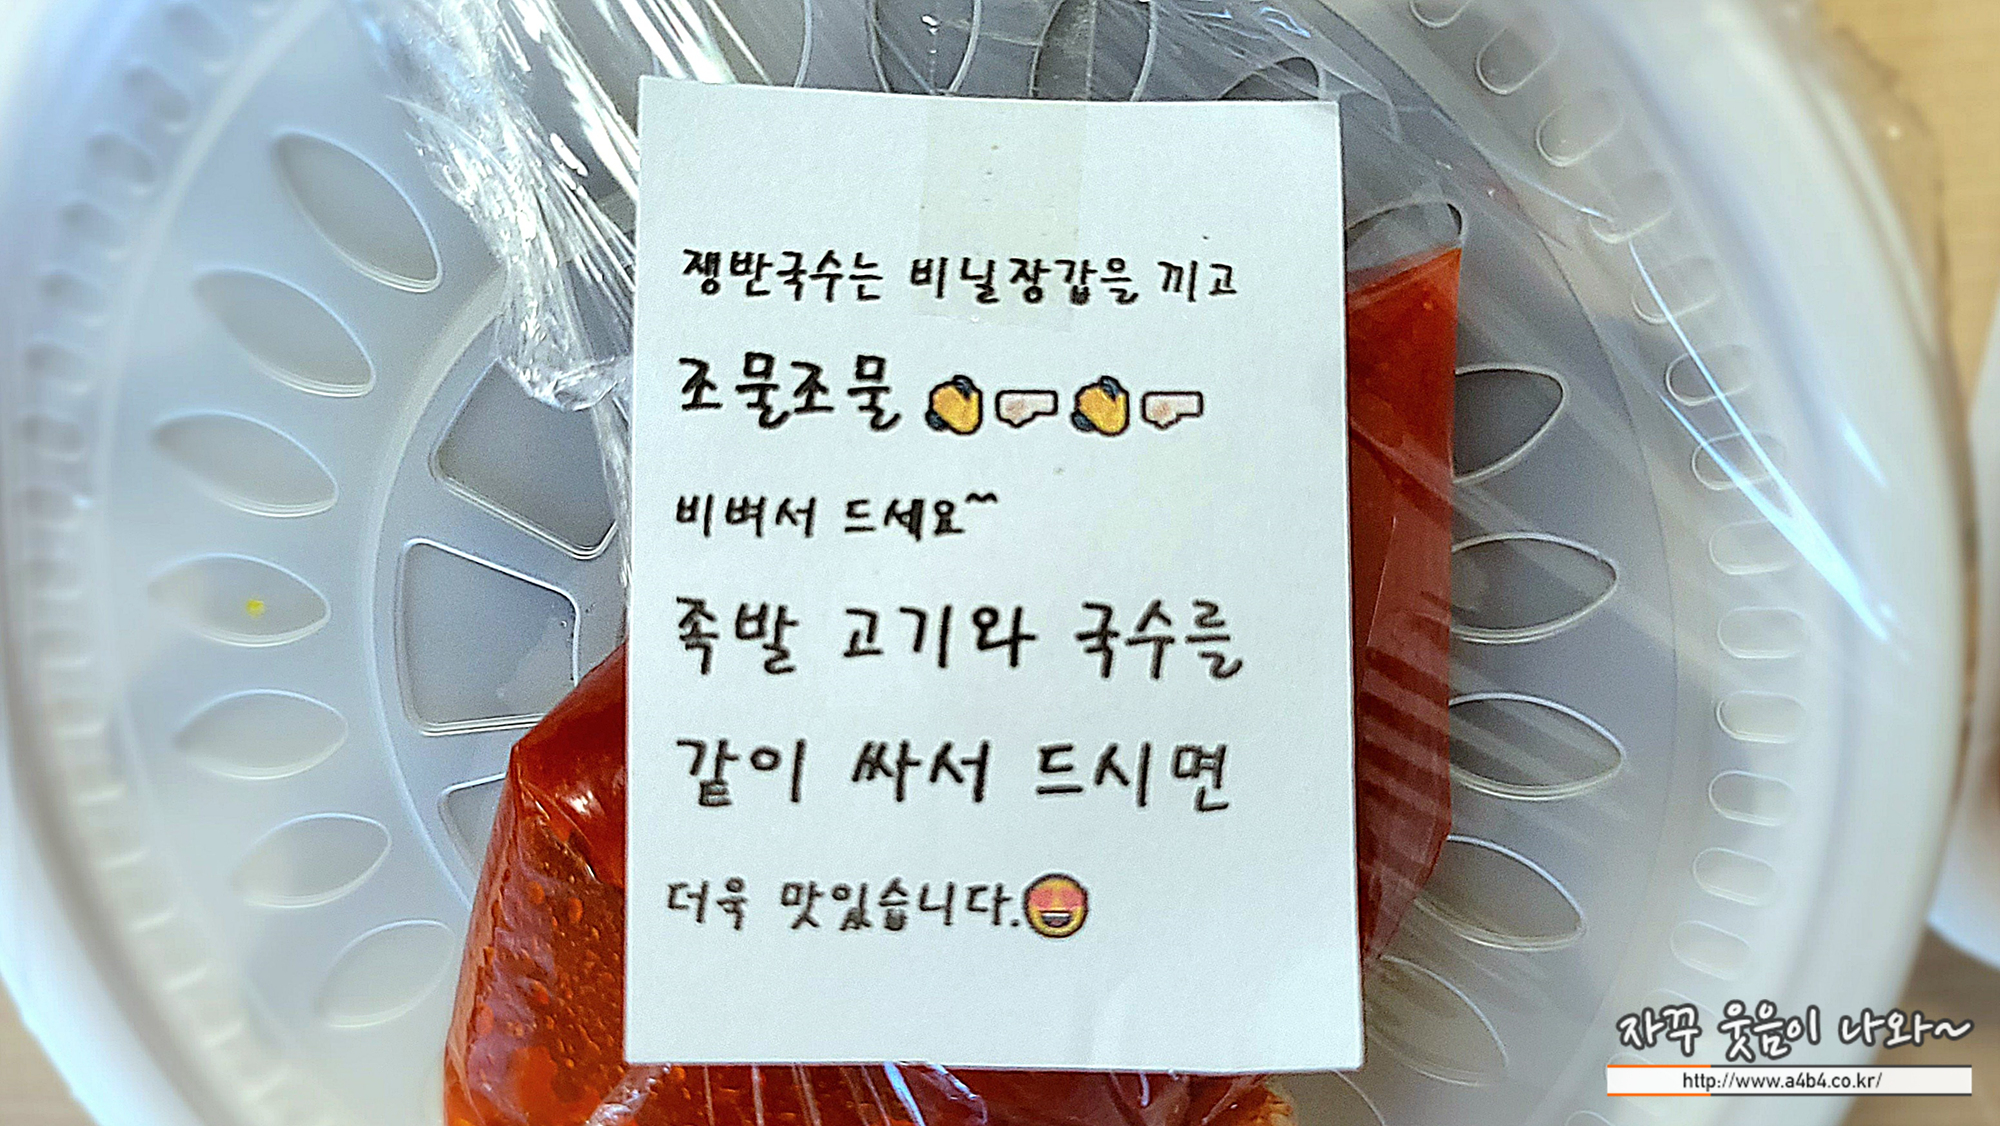 쟁반국수는 비닐장갑을 끼고
조물조물
비벼서 드세요~
족발 고기와 국수를
같이 싸서 드시면
더욱 맛있습니다.
자꾸 웃음이 나와~
http://www.a4b4.co.kr/